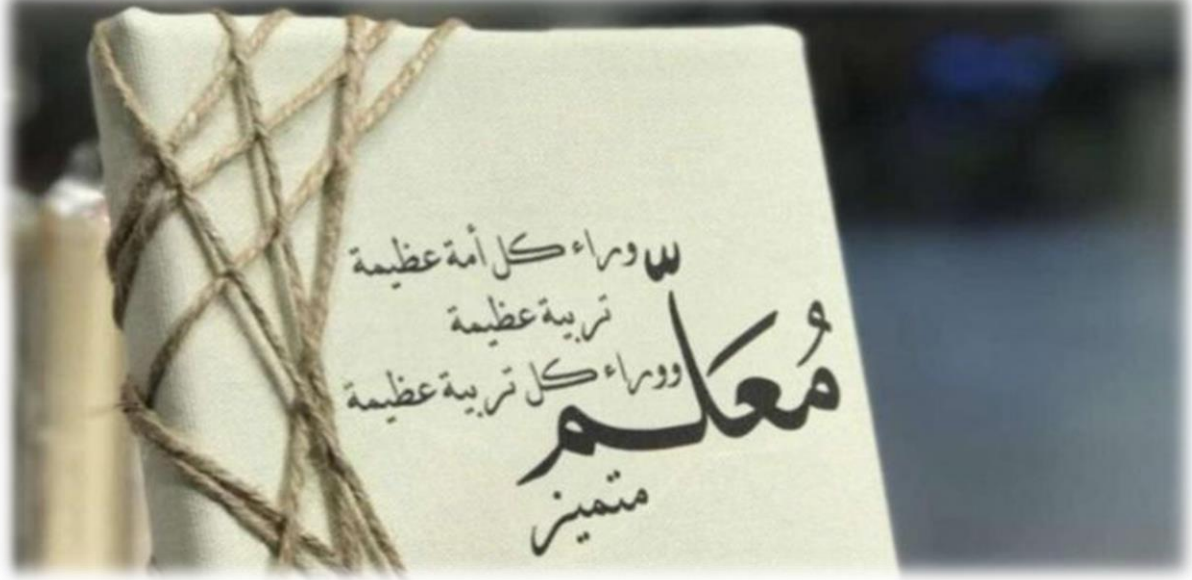 وراء كل أمة عظيمة
تربية عظيمة
ووراء كل تربية عظيمة
مُعَلِّم
متميز